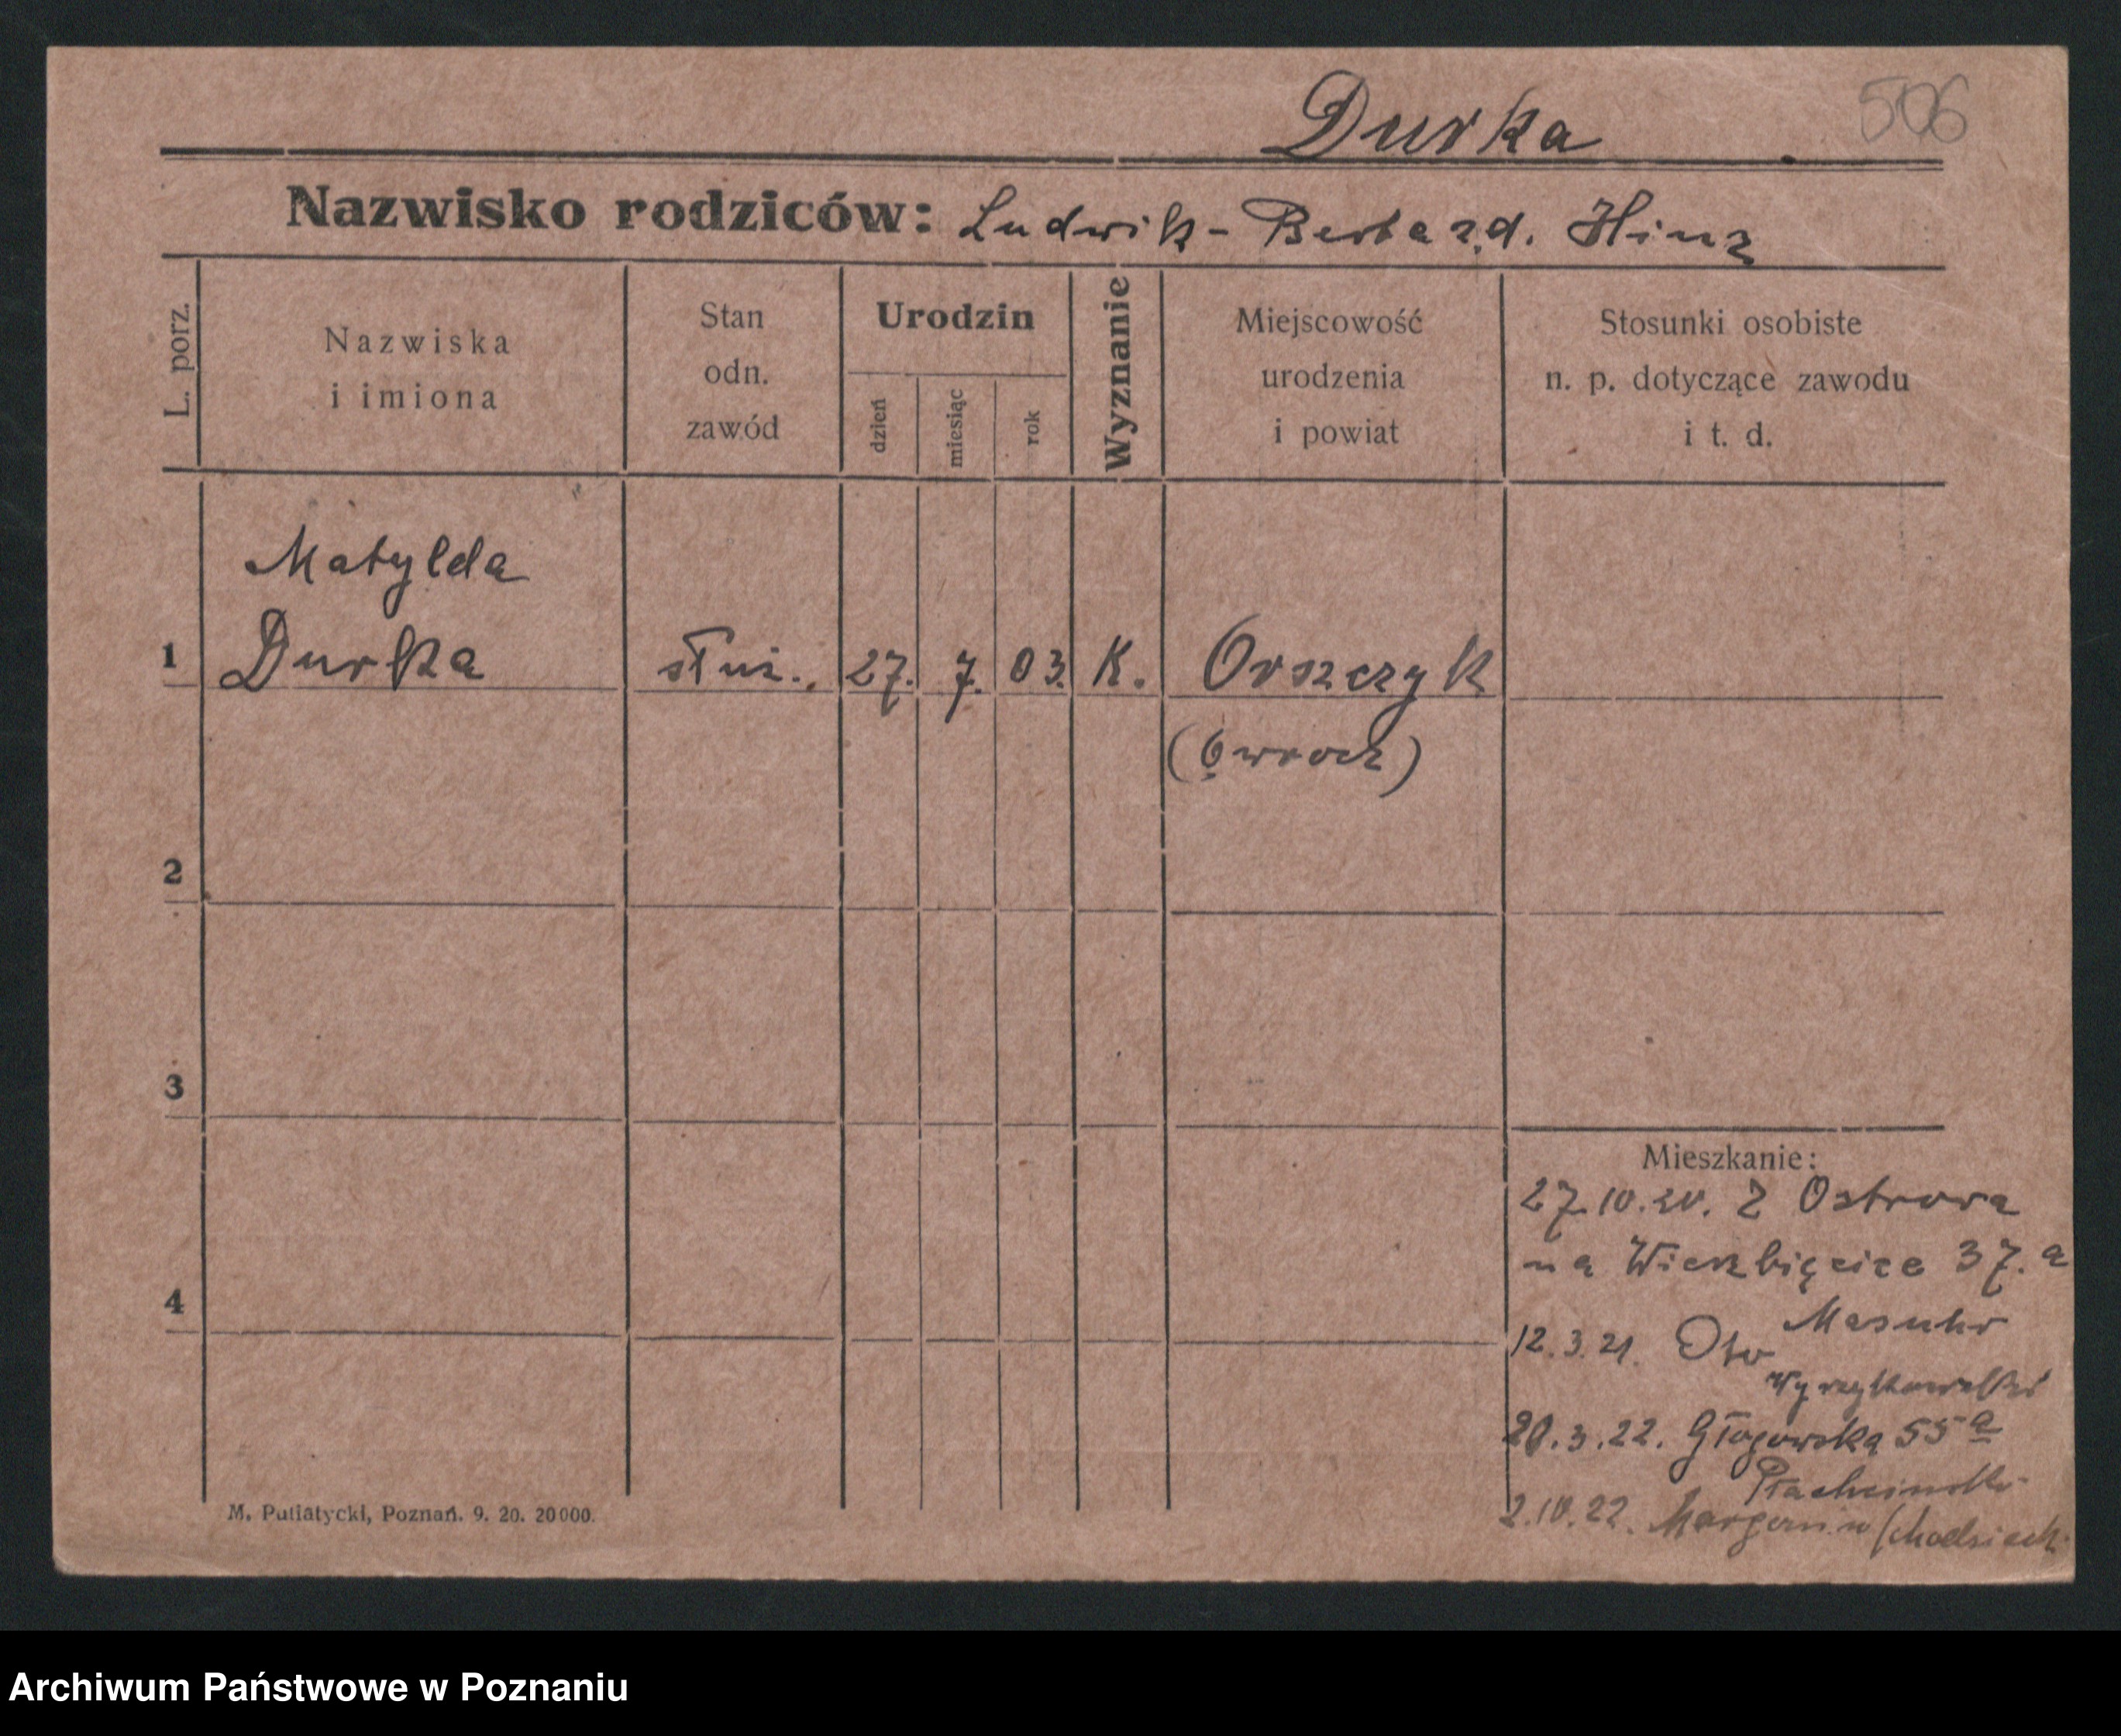 Durka
506
Nazwisko rodziców: Ludwik - Berta zd. Hinz
L. porz.
Nazwiska
i imiona
Stan
odn.
zawód
Urodzin
dzień
miesiąc
rok
Wyznanie
Miejscowość
urodzenia
i powiat
Stosunki osobiste
n. p. dotyczące zawodu
i t. d.
Matylda
1 Durka służ. 27. 7. 03. K. Orszczyk
(Owrocz)
2
3
4
Mieszkanie:
27.10.20. Z Ostrowa
na Wierzbięcice 37.a
Masuhr
12.3.21. Oto
Wyrzykowalski
20.3.22. Głogowska 55a
2.10.22. Margonin (Chodzież
M. Putiatycki, Poznań. 9. 20. 20000.
Archiwum Państwowe w Poznaniu